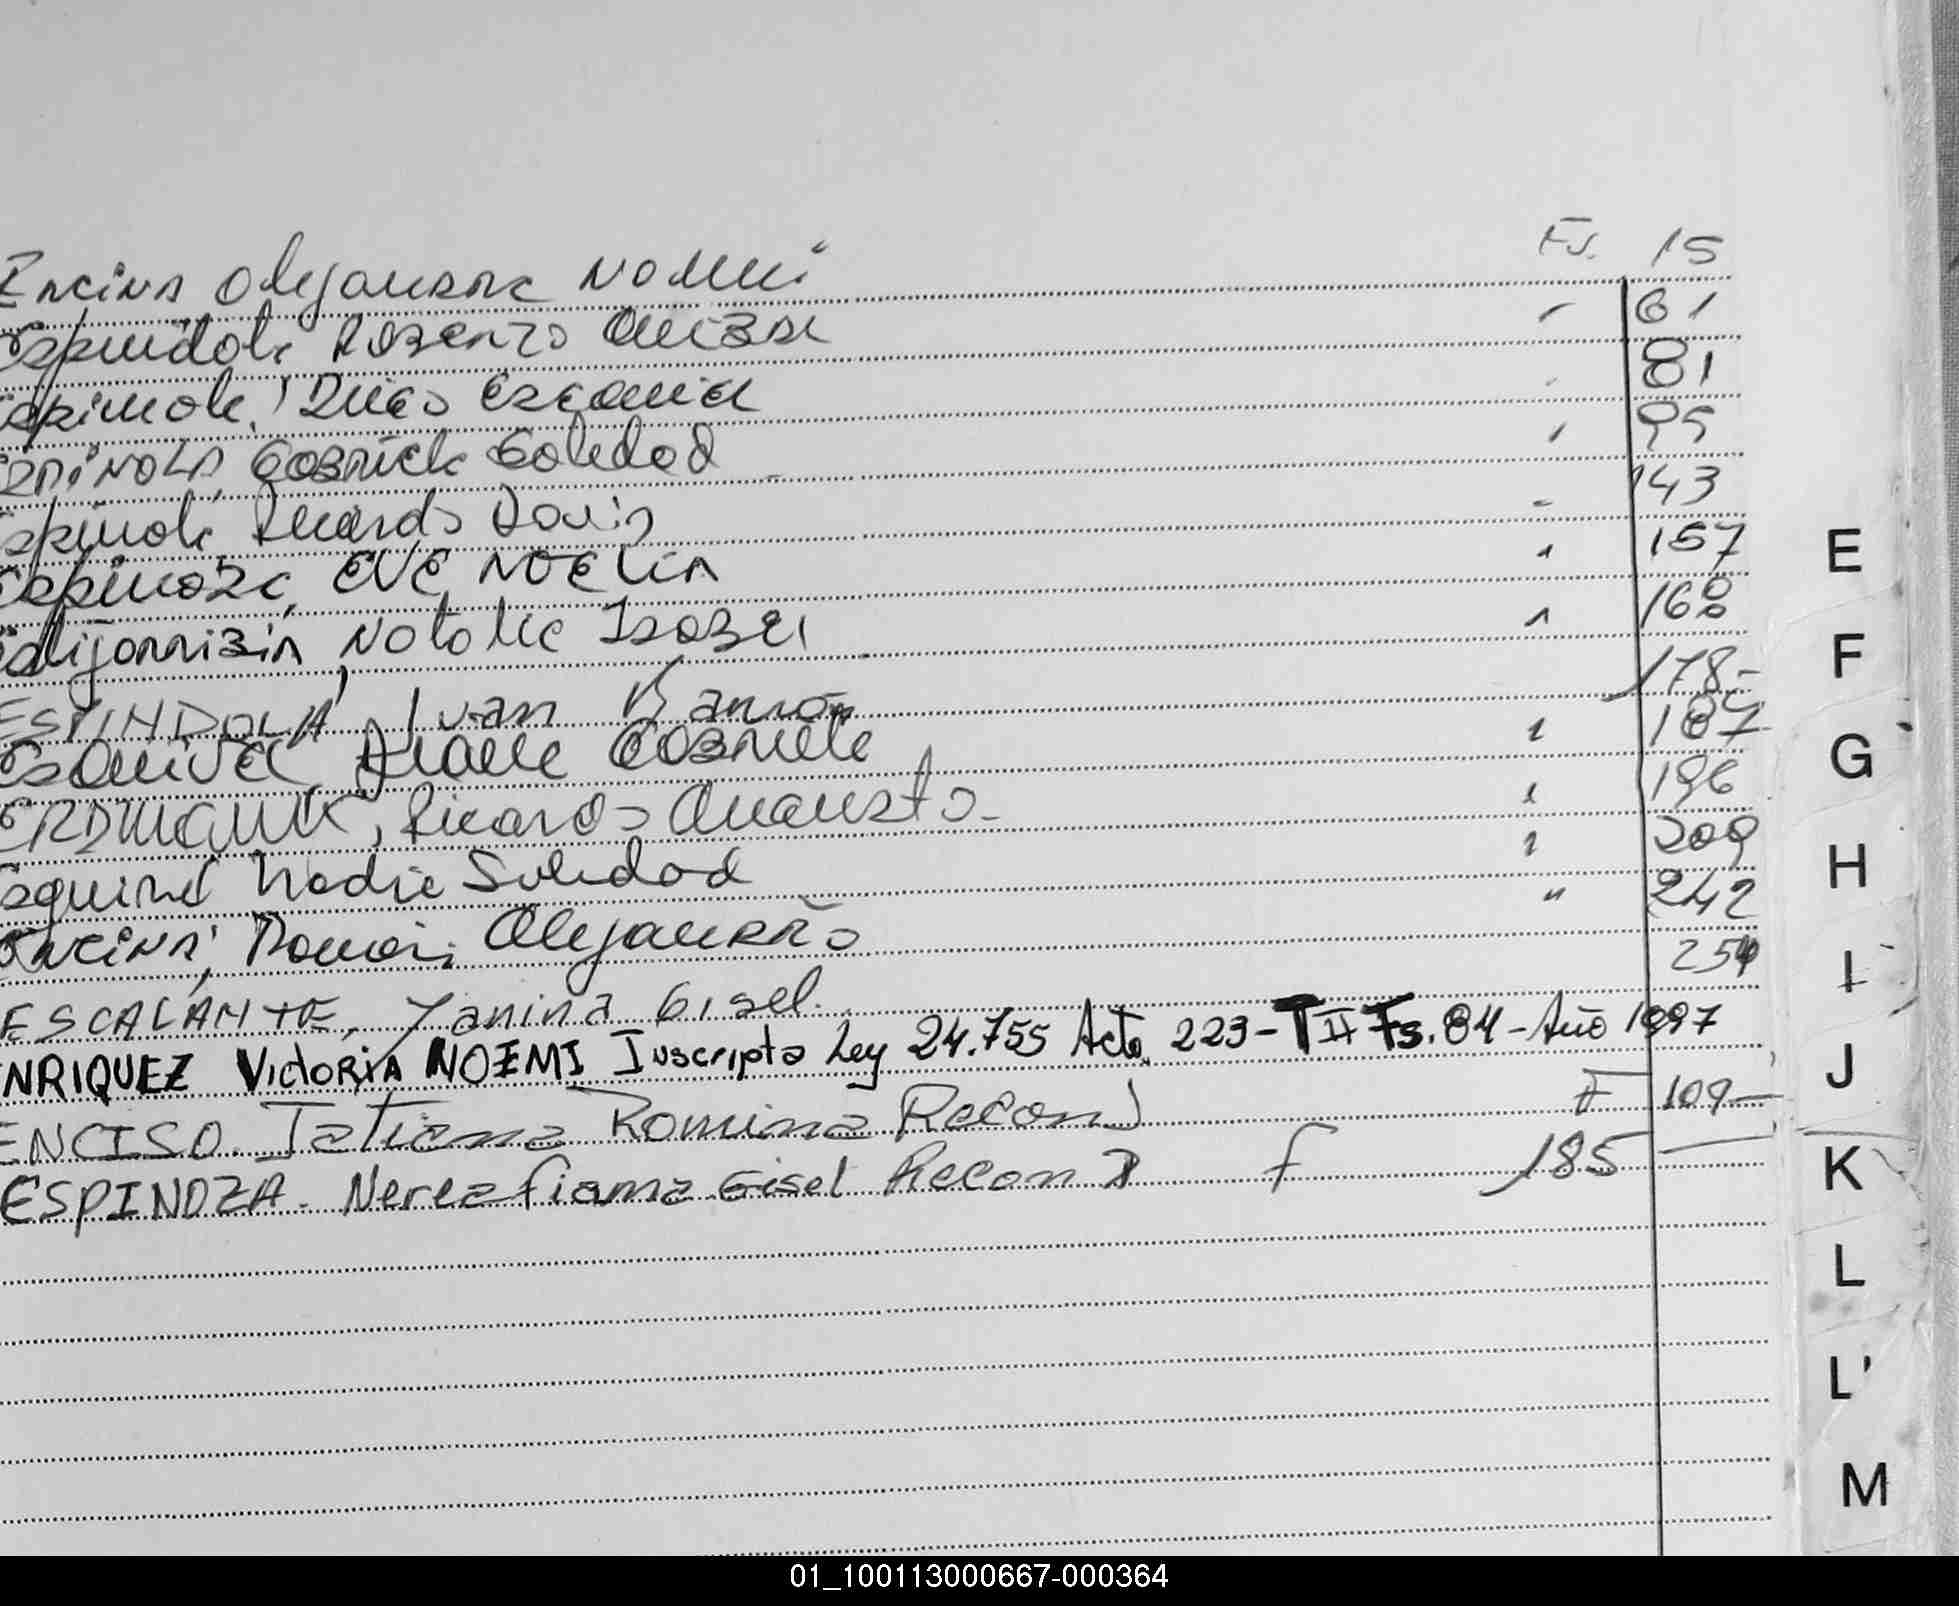 Encina Alejandra Noemi Fs. 15
Espindola Rosenzo " 61
Espinola, Diego Ezequiel " 81
Espinola Gabriela Soledad " 95
Espinola Ricardo David " 143
Espinoza, Eve Noelia " 157
Natalia Isabel " 168
ESPINDOLA, Ivan Ramón 178-
Esquivel Gabriela " 187
ERDMANN, Ricardo Augusto- " 196
Esquivel Nadia Soledad " 209
Encina, Ramon Alejandro " 242
ESCALANTE, Yanina Gisel. 254
ENRIQUEZ Victoria NOEMI Inscripta Ley 24.755 Acta. 223-T II Fs. 84-Año 1997
ENCISO. Tatiana Romina Recon) F 109-
ESPINOZA. Nerea fiama Gisel Recon) f 185
E
F
G
H
I
J
K
L
L'
M
01_100113000667-000364